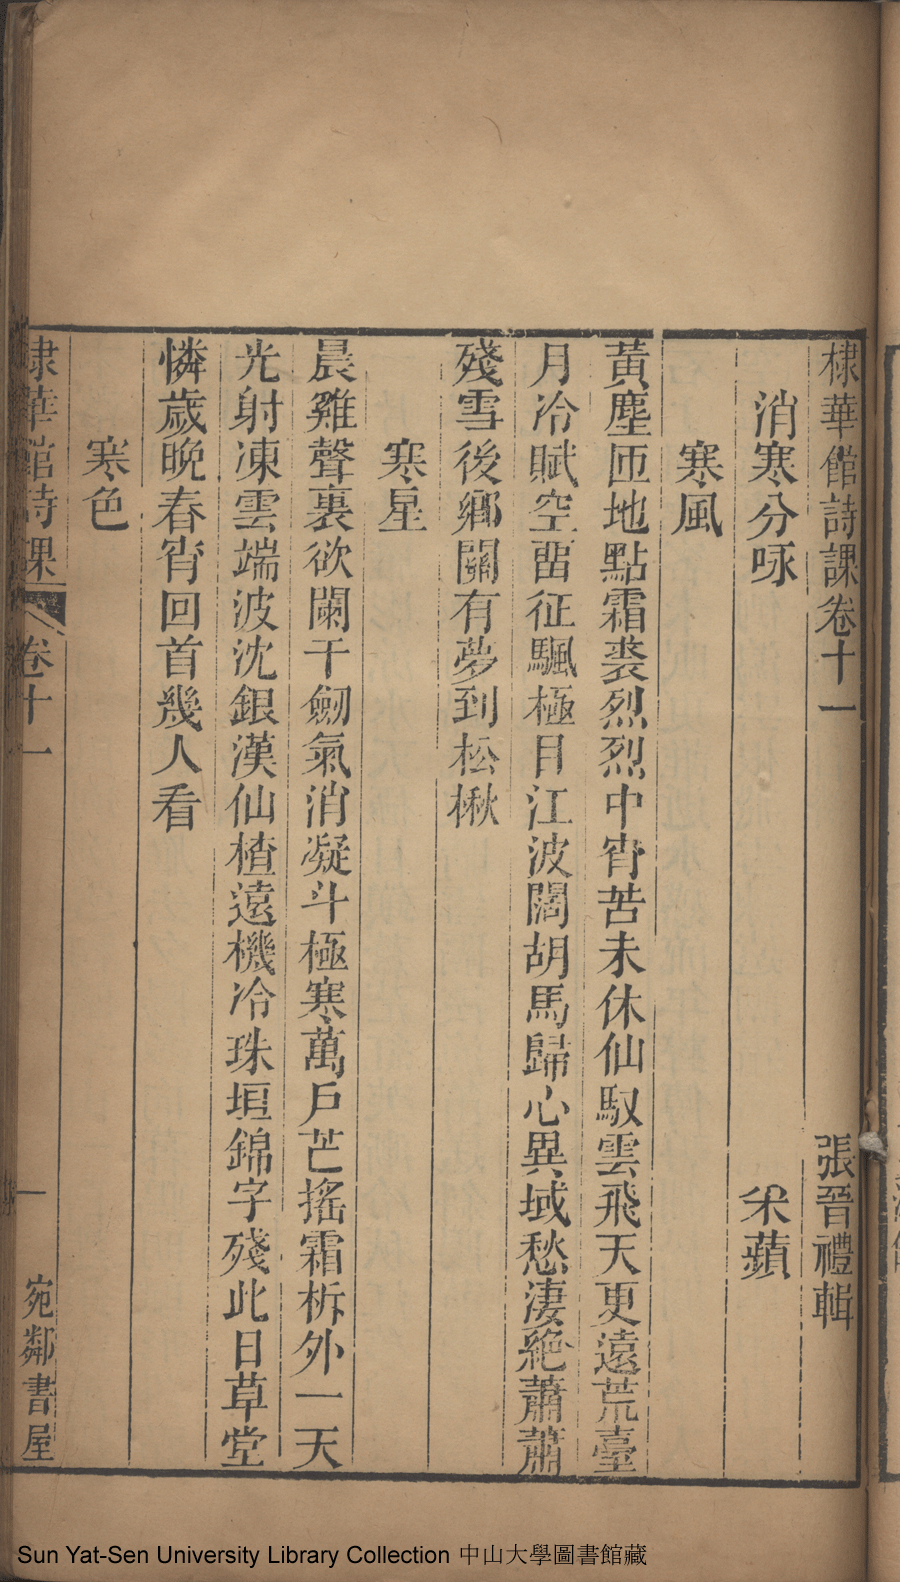 棣華館詩課卷十一 張晉禮輯
消寒分咏 采蘋
寒風
黃塵匝地點霜裘烈烈中宵苦未休仙馭雲飛天更遠荒臺
月冷賦空留征颿極目江波闊胡馬歸心異域愁淒絕蕭蕭
殘雪後鄉關有夢到松楸
寒星
晨雞聲裏欲闌干劒氣消凝斗極寒萬戶芒搖霜柝外一天
光射凍雲端波沈銀漢仙楂遠機冷珠垣錦字殘此日草堂
憐歲晚春宵回首幾人看
寒色
棣華館詩課 卷十一 一 宛鄰書屋
Sun Yat-Sen University Library Collection 中山大學圖書館藏